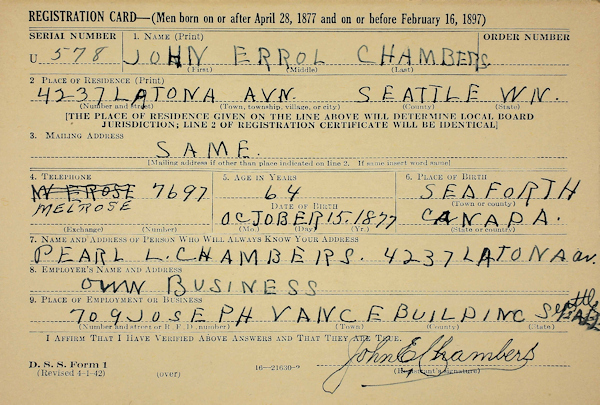 REGISTRATION CARD—(Men born on or after April 28, 1877 and on or before February 16, 1897)
SERIAL NUMBER 1. NAME (Print) ORDER NUMBER
U 578 JOHN ERROL CHAMBERS
(First) (Middle) (Last)
2. PLACE OF RESIDENCE (Print)
4237 LATONA AVN. SEATTLE WN.
(Number and street) (Town, township, village, or city) (County) (State)
[THE PLACE OF RESIDENCE GIVEN ON THE LINE ABOVE WILL DETERMINE LOCAL BOARD
JURISDICTION; LINE 2 OF REGISTRATION CERTIFICATE WILL BE IDENTICAL]
3. MAILING ADDRESS
SAME.
[Mailing address if other than place indicated on line 2. If same insert word same]
4. TELEPHONE 5. AGE IN YEARS 6. PLACE OF BIRTH
7697 64 SEAFORTH
MELROSE DATE OF BIRTH (Town or county)
OCTOBER 15. 1877 CANADA.
(Exchange) (Number) (Mo.) (Day.) (Yr.) (State or country)
7. NAME AND ADDRESS OF PERSON WHO WILL ALWAYS KNOW YOUR ADDRESS
PEARL L. CHAMBERS. 4237 LATONA av.
8. EMPLOYER'S NAME AND ADDRESS
OWN BUSINESS
9. PLACE OF EMPLOYMENT OR BUSINESS
709 JOSEPH VANCE BUILDING Seattle
(Number and street or R. F. D. number) (Town) (County) (State)
I AFFIRM THAT I HAVE VERIFIED ABOVE ANSWERS AND THAT THEY ARE TRUE.
John E Chambers
D. S. S. Form 1 (Registrant's signature)
(Revised 4-1-42) (over) 16—21630-2